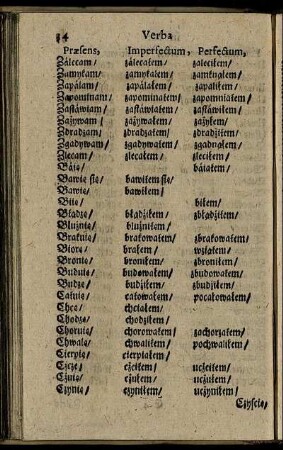 34 Verba
Præsens, Imperfectum, Perfectum,
Zálecam/ zálecałem/ zaleciłem/
Zamykam/ zamykałem/ zamknąłem/
Zapálam/ zapálałem/ zapaliłem/
Zapominam/ zapominałem/ zapomniałem/
Zastáwiam/ zastáwiałem/ zastáwiłem/
Zażywam/ zażywałem/ zażyłem/
Zdradzam/ zdradzałem/ zdradziłem/
Zgadywam/ zgadywałem/ zgadnąłem/
Zlecam/ zlecałem/ zleciłem/
Báię/ báiałem/
Bawię się/ bawiłem się/
Bawię/ bawiłem/
Biię/ biłem/
Błądzę/ błądziłem/ zbłądziłem/
Bluźnię/ bluźniłem/
Brákuię/ brákowałem/ zbrákowałem/
Biorę/ brałem/ wziąłem/
Bronię/ broniłem/ zbroniłem/
Buduię/ budowałem/ zbudowałem/
Budzę/ budziłem/ zbudziłem/
Całuię/ całowałem/ pocałowałem/
Chcę/ chciałem/
Chodzę/ chodziłem/
Choruię/ chorowałem/ zachorzałem/
Chwalę/ chwaliłem/ pochwaliłem/
Cierpię/ cierpiałem/
Czczę/ cżciłem/ ucżciłem/
Cżuię/ cżułem/ ucżułem/
Cżynię/ cżyniłem/ ucżyniłem/
Cżyscię/